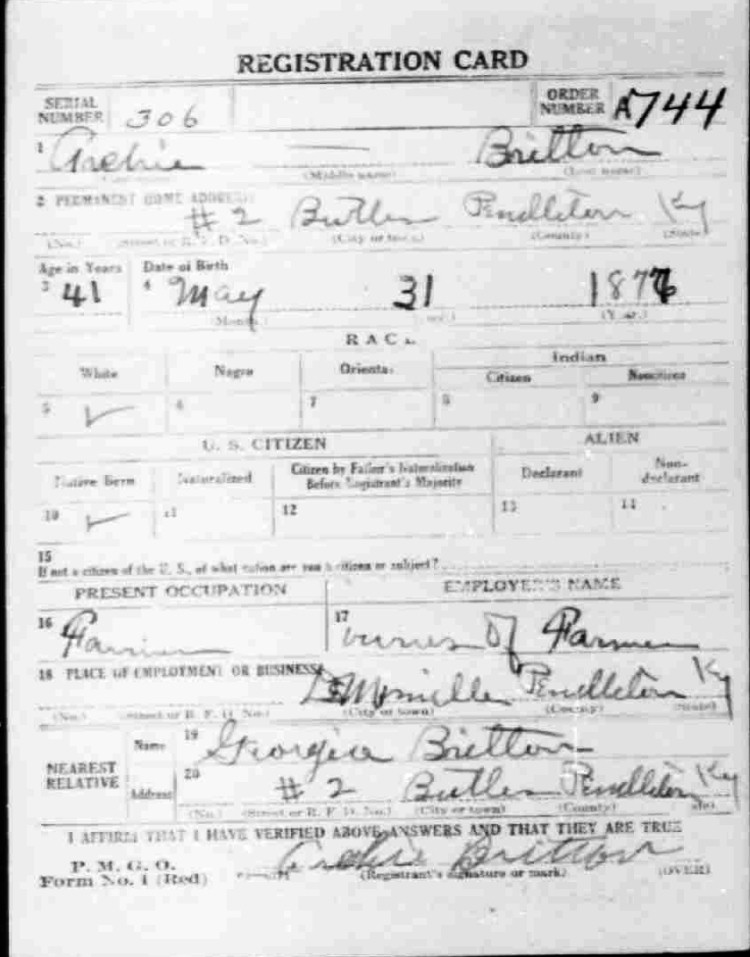 REGISTRATION CARD
SERIAL NUMBER 306 ORDER NUMBER A744
1 Archie — Britton
(Middle name) (Last name)
2 PERMANENT HOME ADDRESS
# 2 Butler Pendleton Ky
(No.) (Street or R. F. D. No.) (City or town) (County) (State)
Age in Years Date of Birth
3 41 4 May 31 1877
(Month) (Day) (Year)
RACE
White Negro Oriental Indian
Citizen Noncitizen
5 ✓ 6 7 8 9
U. S. CITIZEN ALIEN
Native Born Naturalized Citizen by Father's Naturalization Before Registrant's Majority Declarant Non-declarant
10 ✓ 11 12 13 14
15
If not a citizen of the U. S., of what nation are you a citizen or subject?
PRESENT OCCUPATION EMPLOYER'S NAME
16 Farmer 17 of Farmer
18 PLACE OF EMPLOYMENT OR BUSINESS
DeMossville Pendleton Ky
(No.) (Street or R. F. D. No.) (City or town) (County) (State)
NEAREST RELATIVE
Name 19 Georgia Britton
Address 20 # 2 Butler Pendleton Ky
(No.) (Street or R. F. D. No.) (City or town) (County) (State)
I AFFIRM THAT I HAVE VERIFIED ABOVE ANSWERS AND THAT THEY ARE TRUE
P. M. G. O.
Form No. 1 (Red) Archie Britton
(Registrant's signature or mark) (OVER)